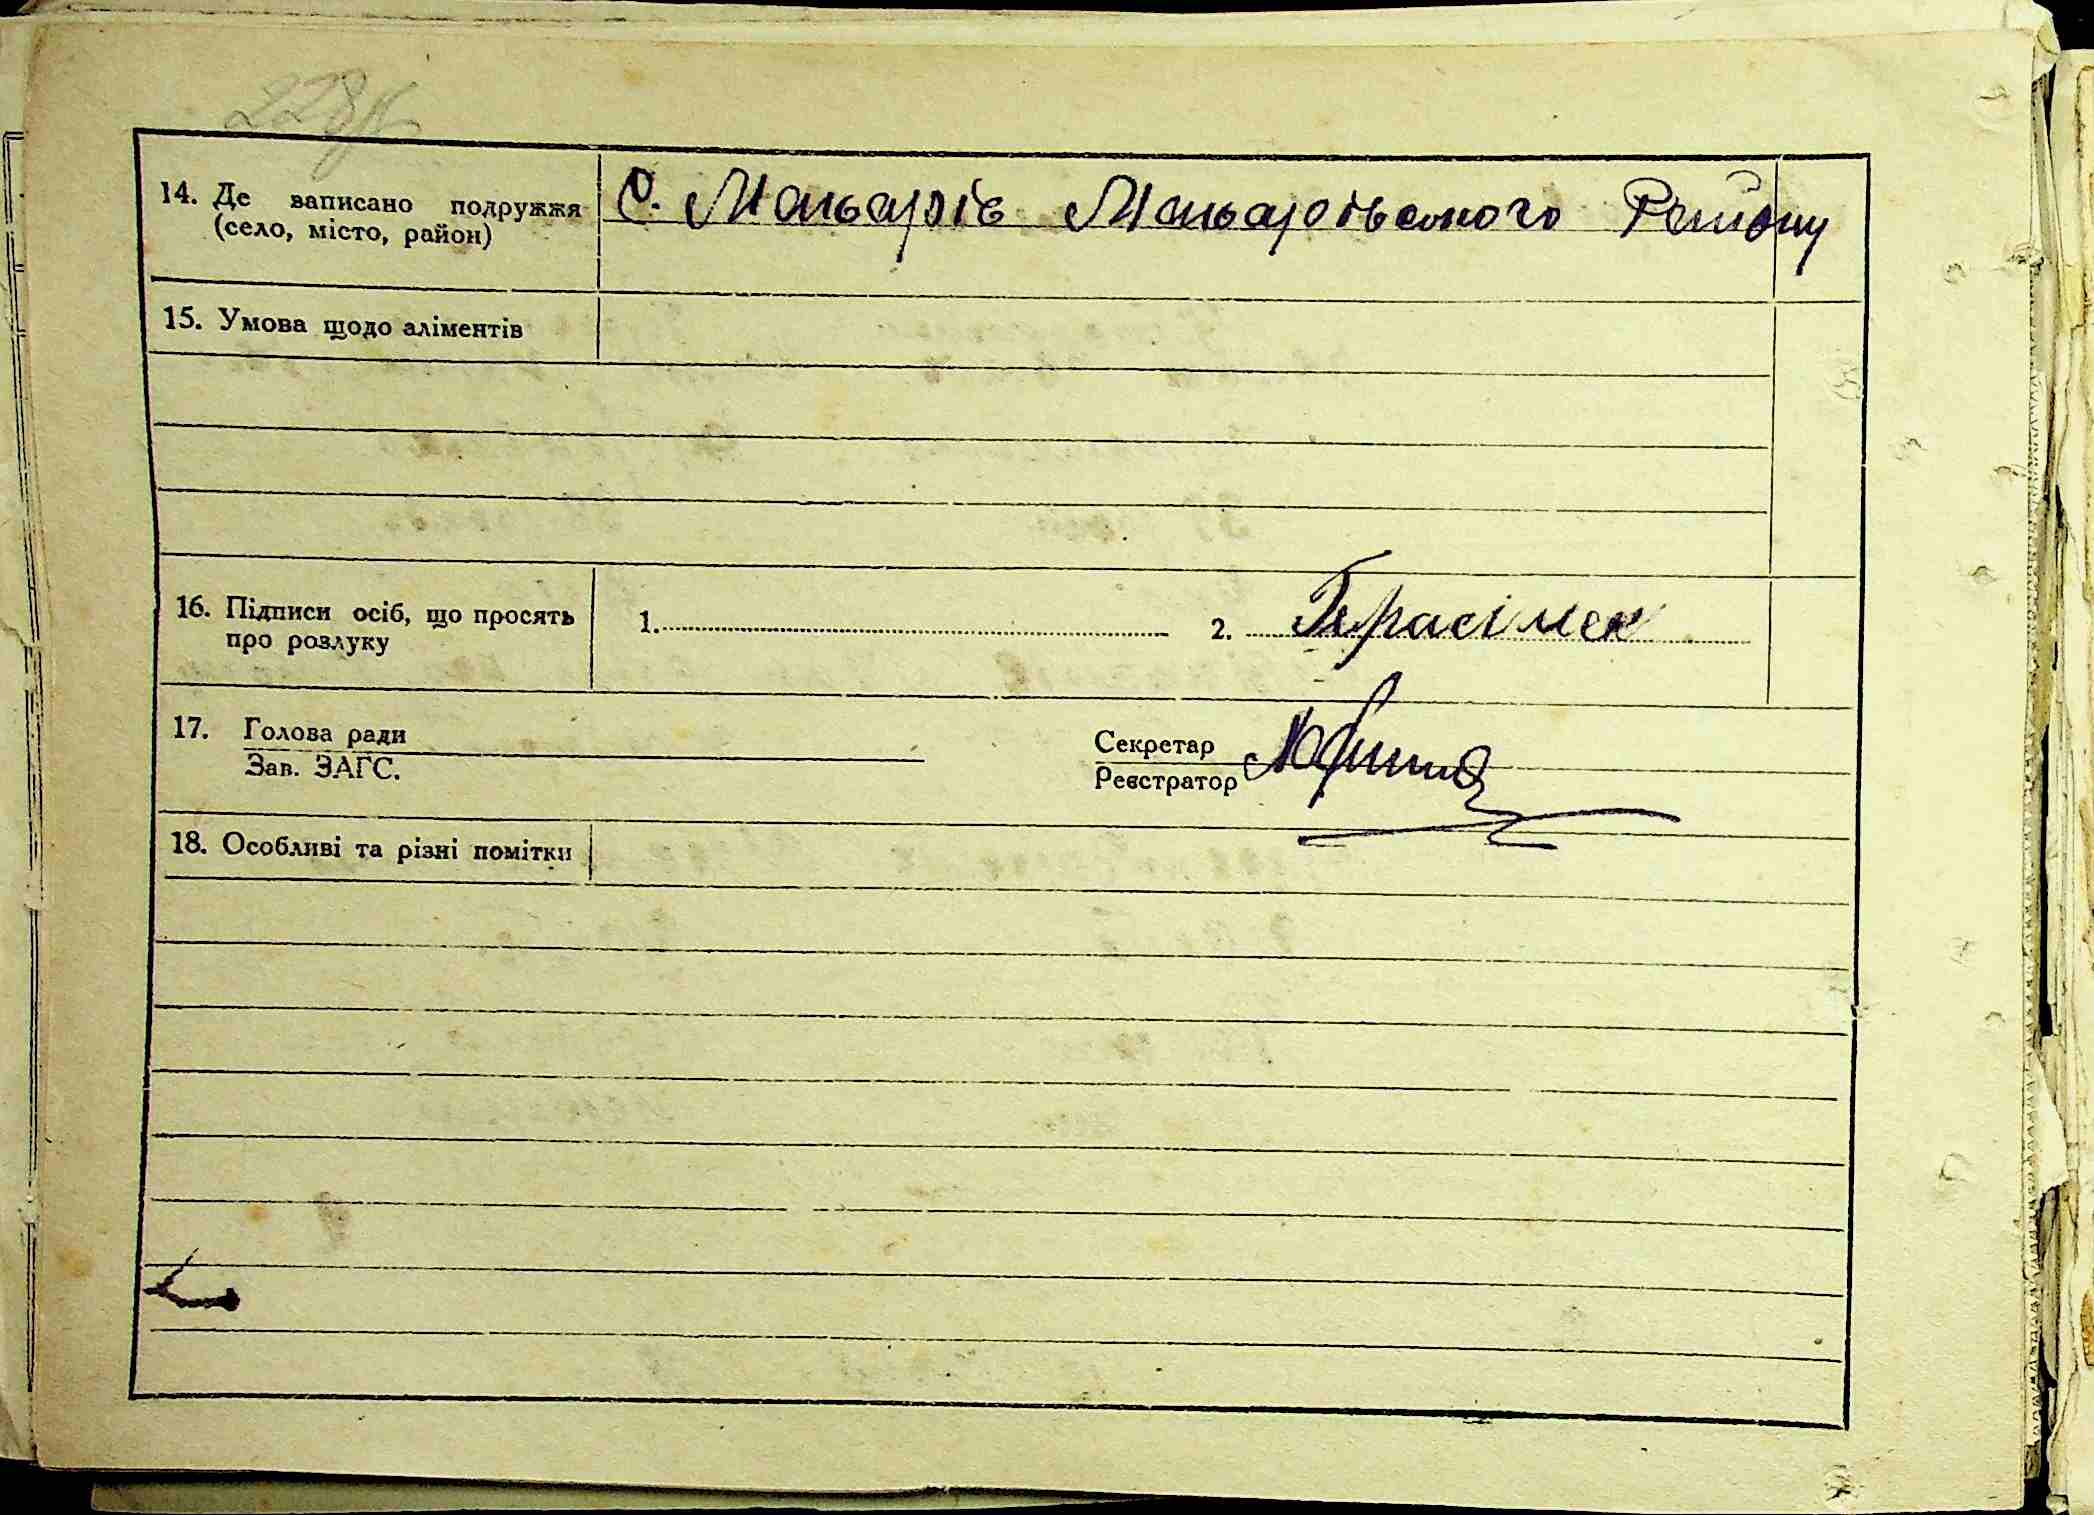 14. Де записано подружжя
(село, місто, район)
С. Макарів Макарівського Району
15. Умова щодо аліментів
16. Підписи осіб, що просять
про розлуку
1.
2. Герасімек
17. Голова ради
Зав. ЗАГС.
Секретар
Реєстратор
18. Особливі та різні помітки